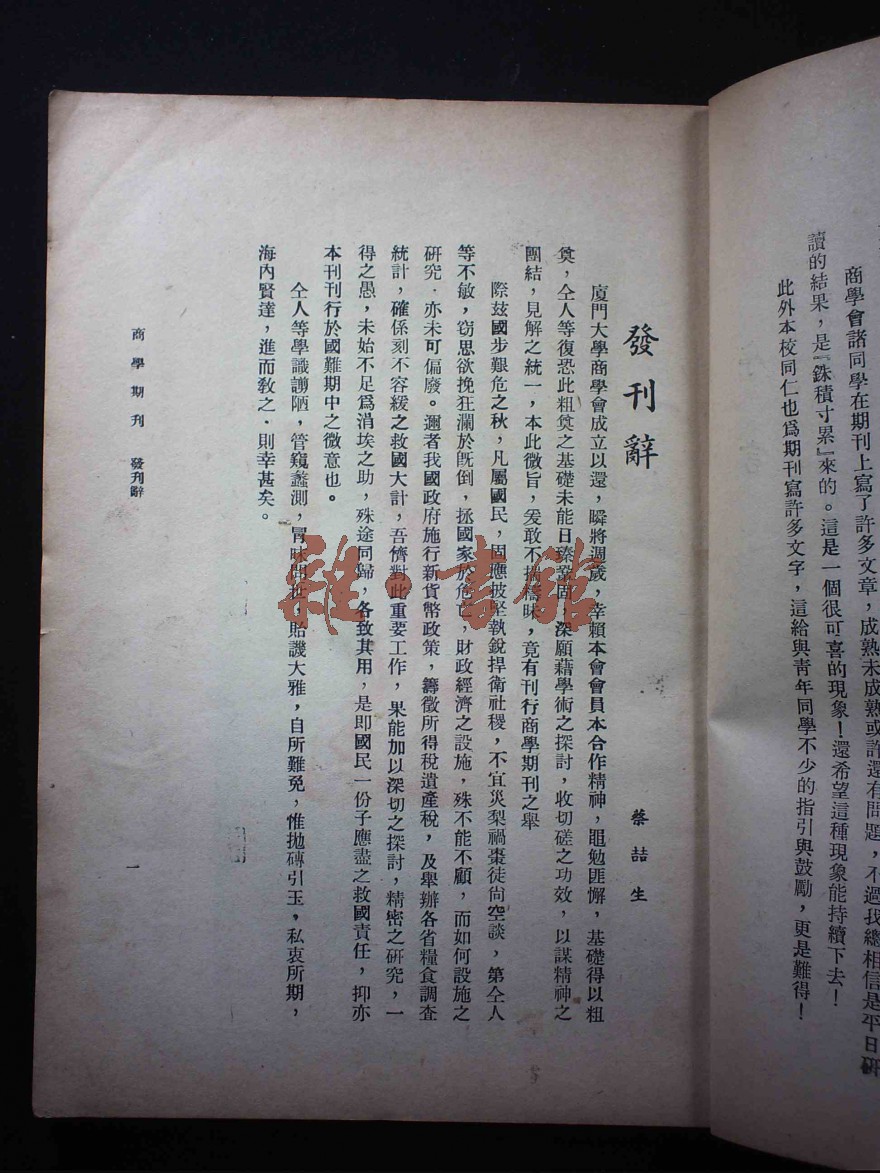 商學會諸同學在期刊上寫了許多文章，成熟未成熟或許還有問題，不過我總相信是平日研
讀的結果，是『銖積寸累』來的。這是一個很可喜的現象！還希望這種現象能持續下去！
此外本校同仁也爲期刊寫許多文字，這給與靑年同學不少的指引與鼓勵，更是難得！
發刊辭
蔡喆生
廈門大學商學會成立以還，瞬將週歲，幸賴本會會員本合作精神，黽勉匪懈，基礎得以粗
奠，仝人等復恐此粗奠之基礎未能日臻鞏固，深願藉學術之探討，收切磋之功效，以謀精神之
團結，見解之統一，本此微旨，爰敢不揣檮昧，竟有刊行商學期刊之舉
際茲國步艱危之秋，凡屬國民，固應披堅執銳捍衛社稷，不宜災梨禍棗徒尙空談，第仝人
等不敏，窃思欲挽狂瀾於旣倒，拯國家於危亡，財政經濟之設施，殊不能不顧，而如何設施之
研究．亦未可偏廢。邇者我國政府施行新貨幣政策，籌徵所得稅遺產稅，及舉辦各省糧食調查
統計，確係刻不容緩之救國大計，吾儕對此重要工作，果能加以深切之探討，精密之研究，一
得之愚，未始不足爲涓埃之助，殊途同歸，各致其用，是即國民一份子應盡之救國責任，抑亦
本刊刊行於國難期中之微意也。
仝人等學識謭陋，管窺蠡測，冒昧問世，貽譏大雅，自所難免，惟拋磚引玉，私衷所期，
海內賢達，進而敎之．則幸甚矣。
商學期刊 發刊辭
一
雜·書館